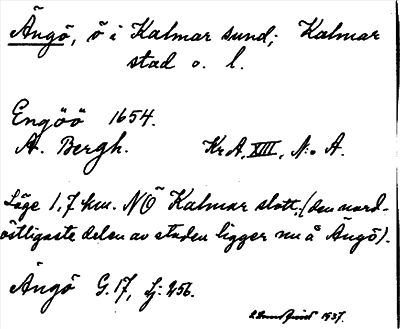 Ängö, ö i Kalmar sund; Kalmar
stad o. l.
Engöö 1654.
A. Bergh. KrA, XIII, N:o A.
Läge 1,7 km. NÖ Kalmar slott, (den nord-
östligaste delen av staden ligger nu å Ängö).
Ängö G. 17, Lj: 256.
1937.